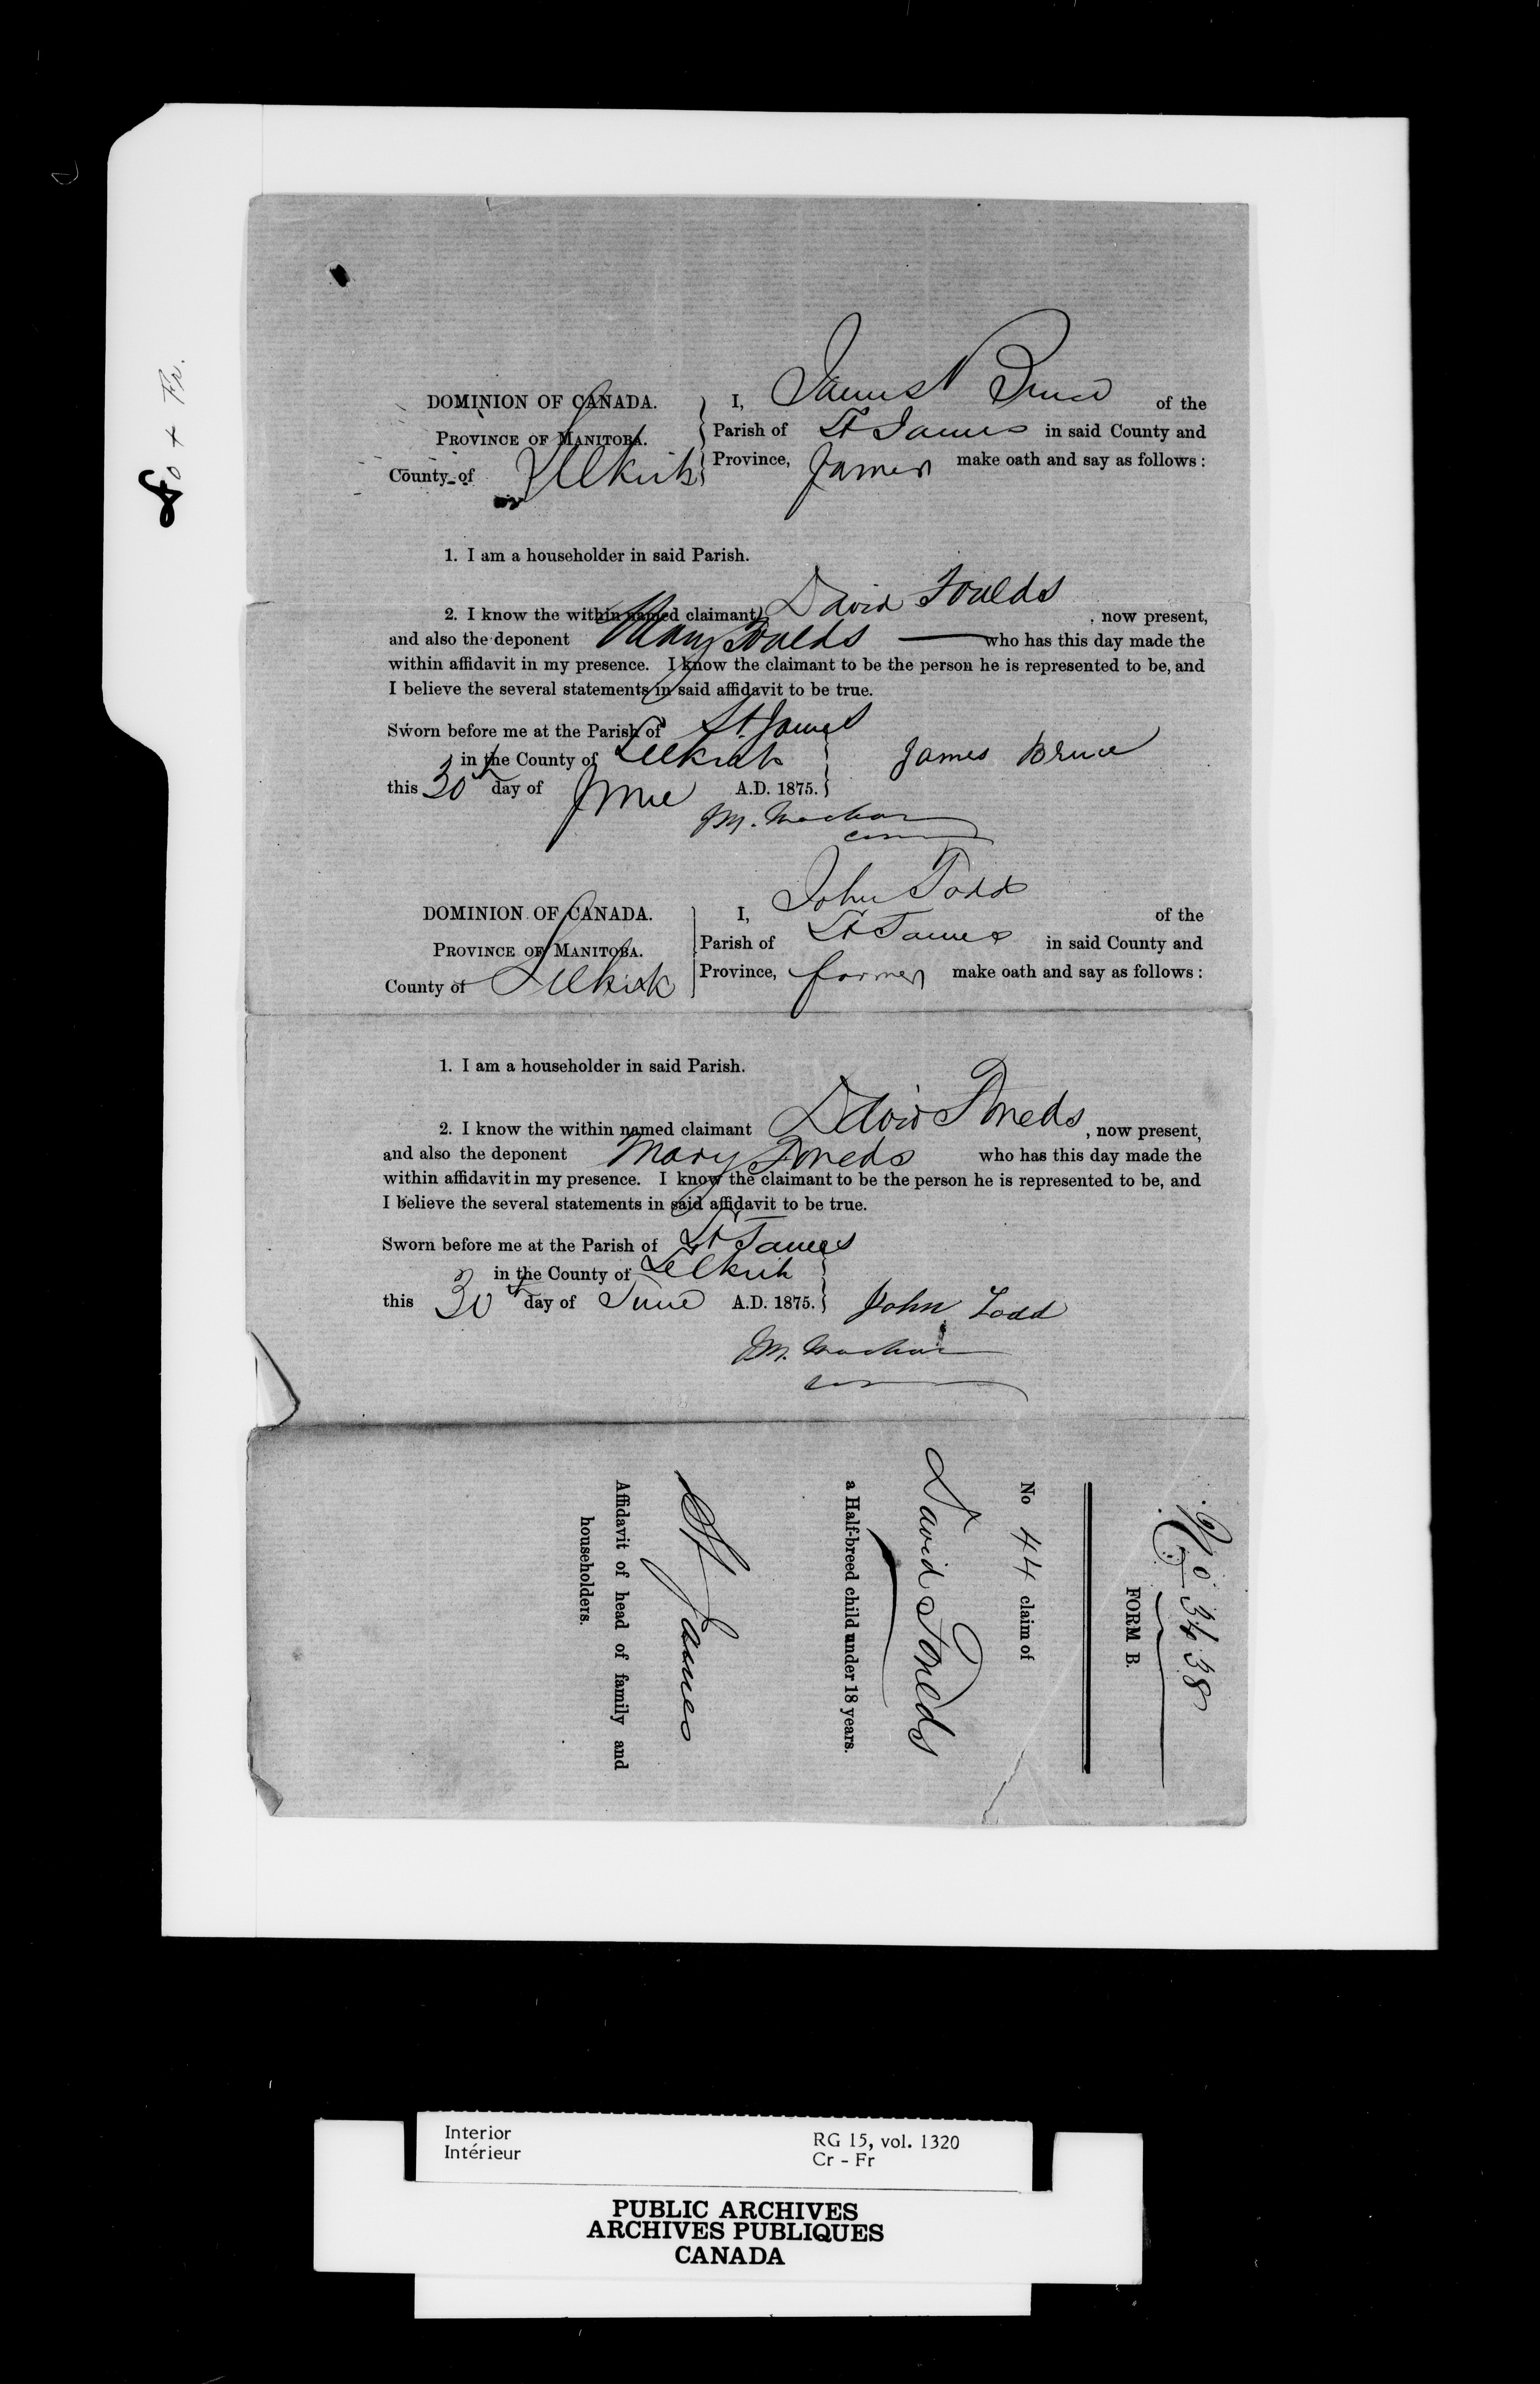 Fo + Fr.
DOMINION OF CANADA.
PROVINCE OF MANITOBA.
County of Selkirk
I, James Bruce of the
Parish of St James in said County and
Province, farmer make oath and say as follows:
1. I am a householder in said Parish.
2. I know the within named claimant David Foulds, now present,
and also the deponent Mary Foulds who has this day made the
within affidavit in my presence. I know the claimant to be the person he is represented to be, and
I believe the several statements in said affidavit to be true.
Sworn before me at the Parish of St. James
in the County of Selkirk
this 30th day of June A.D. 1875.
James Bruce
J.M. Machar
DOMINION OF CANADA.
PROVINCE OF MANITOBA.
County of Selkirk
I, John Todd of the
Parish of St James in said County and
Province, farmer make oath and say as follows:
1. I am a householder in said Parish.
2. I know the within named claimant David Foulds, now present,
and also the deponent Mary Foulds who has this day made the
within affidavit in my presence. I know the claimant to be the person he is represented to be, and
I believe the several statements in said affidavit to be true.
Sworn before me at the Parish of St James
in the County of Selkirk
this 30th day of June A.D. 1875.
John Todd
J.M. Machar
No 3438
FORM B.
No 44 claim of
David Foulds
a Half-breed child under 18 years.
St James
Affidavit of head of family and
householders.
Interior
Intérieur
RG 15, vol. 1320
Cr - Fr
PUBLIC ARCHIVES
ARCHIVES PUBLIQUES
CANADA